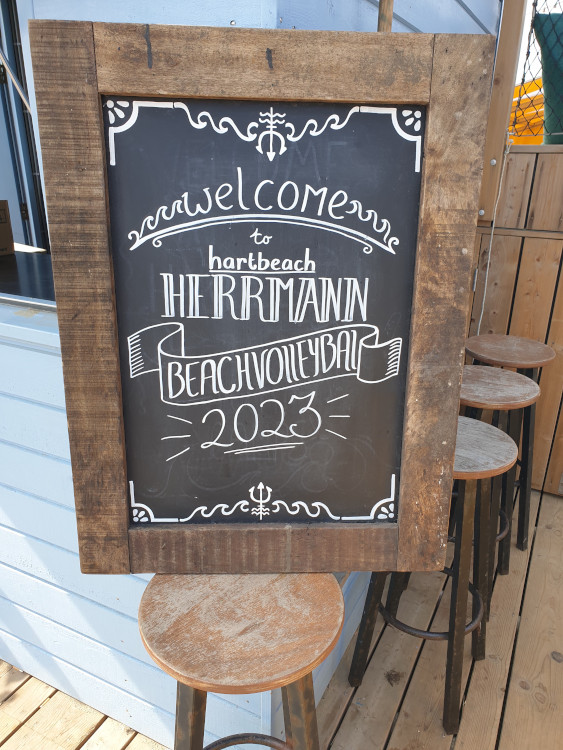 welcome
to
hartbeach
HERRMANN
BEACHVOLLEYBALL
2023